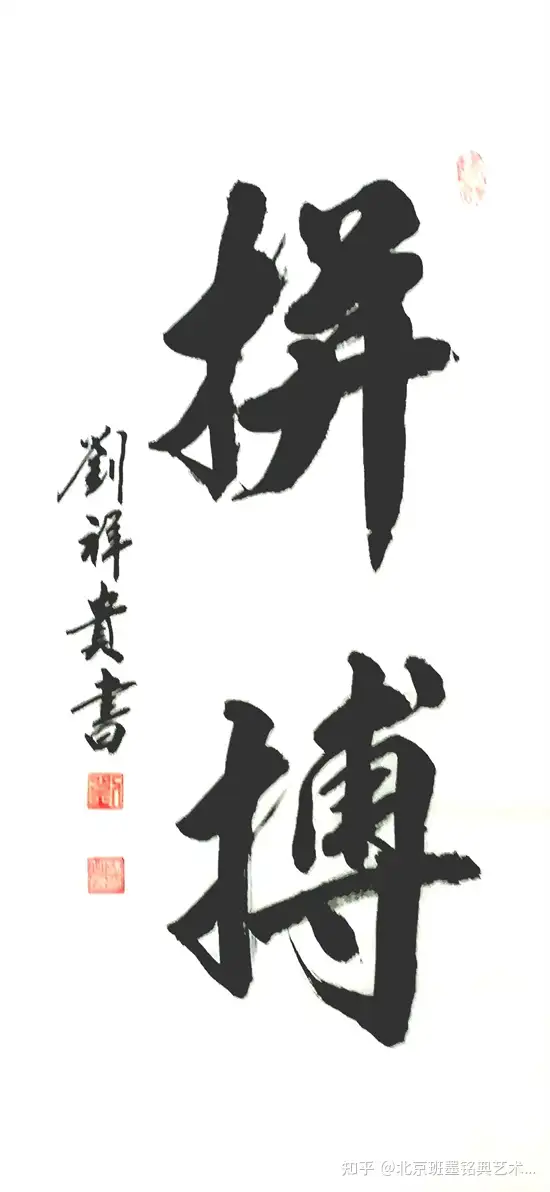 拼搏
劉祥貴書
知乎 @北京班墨铭典艺术...